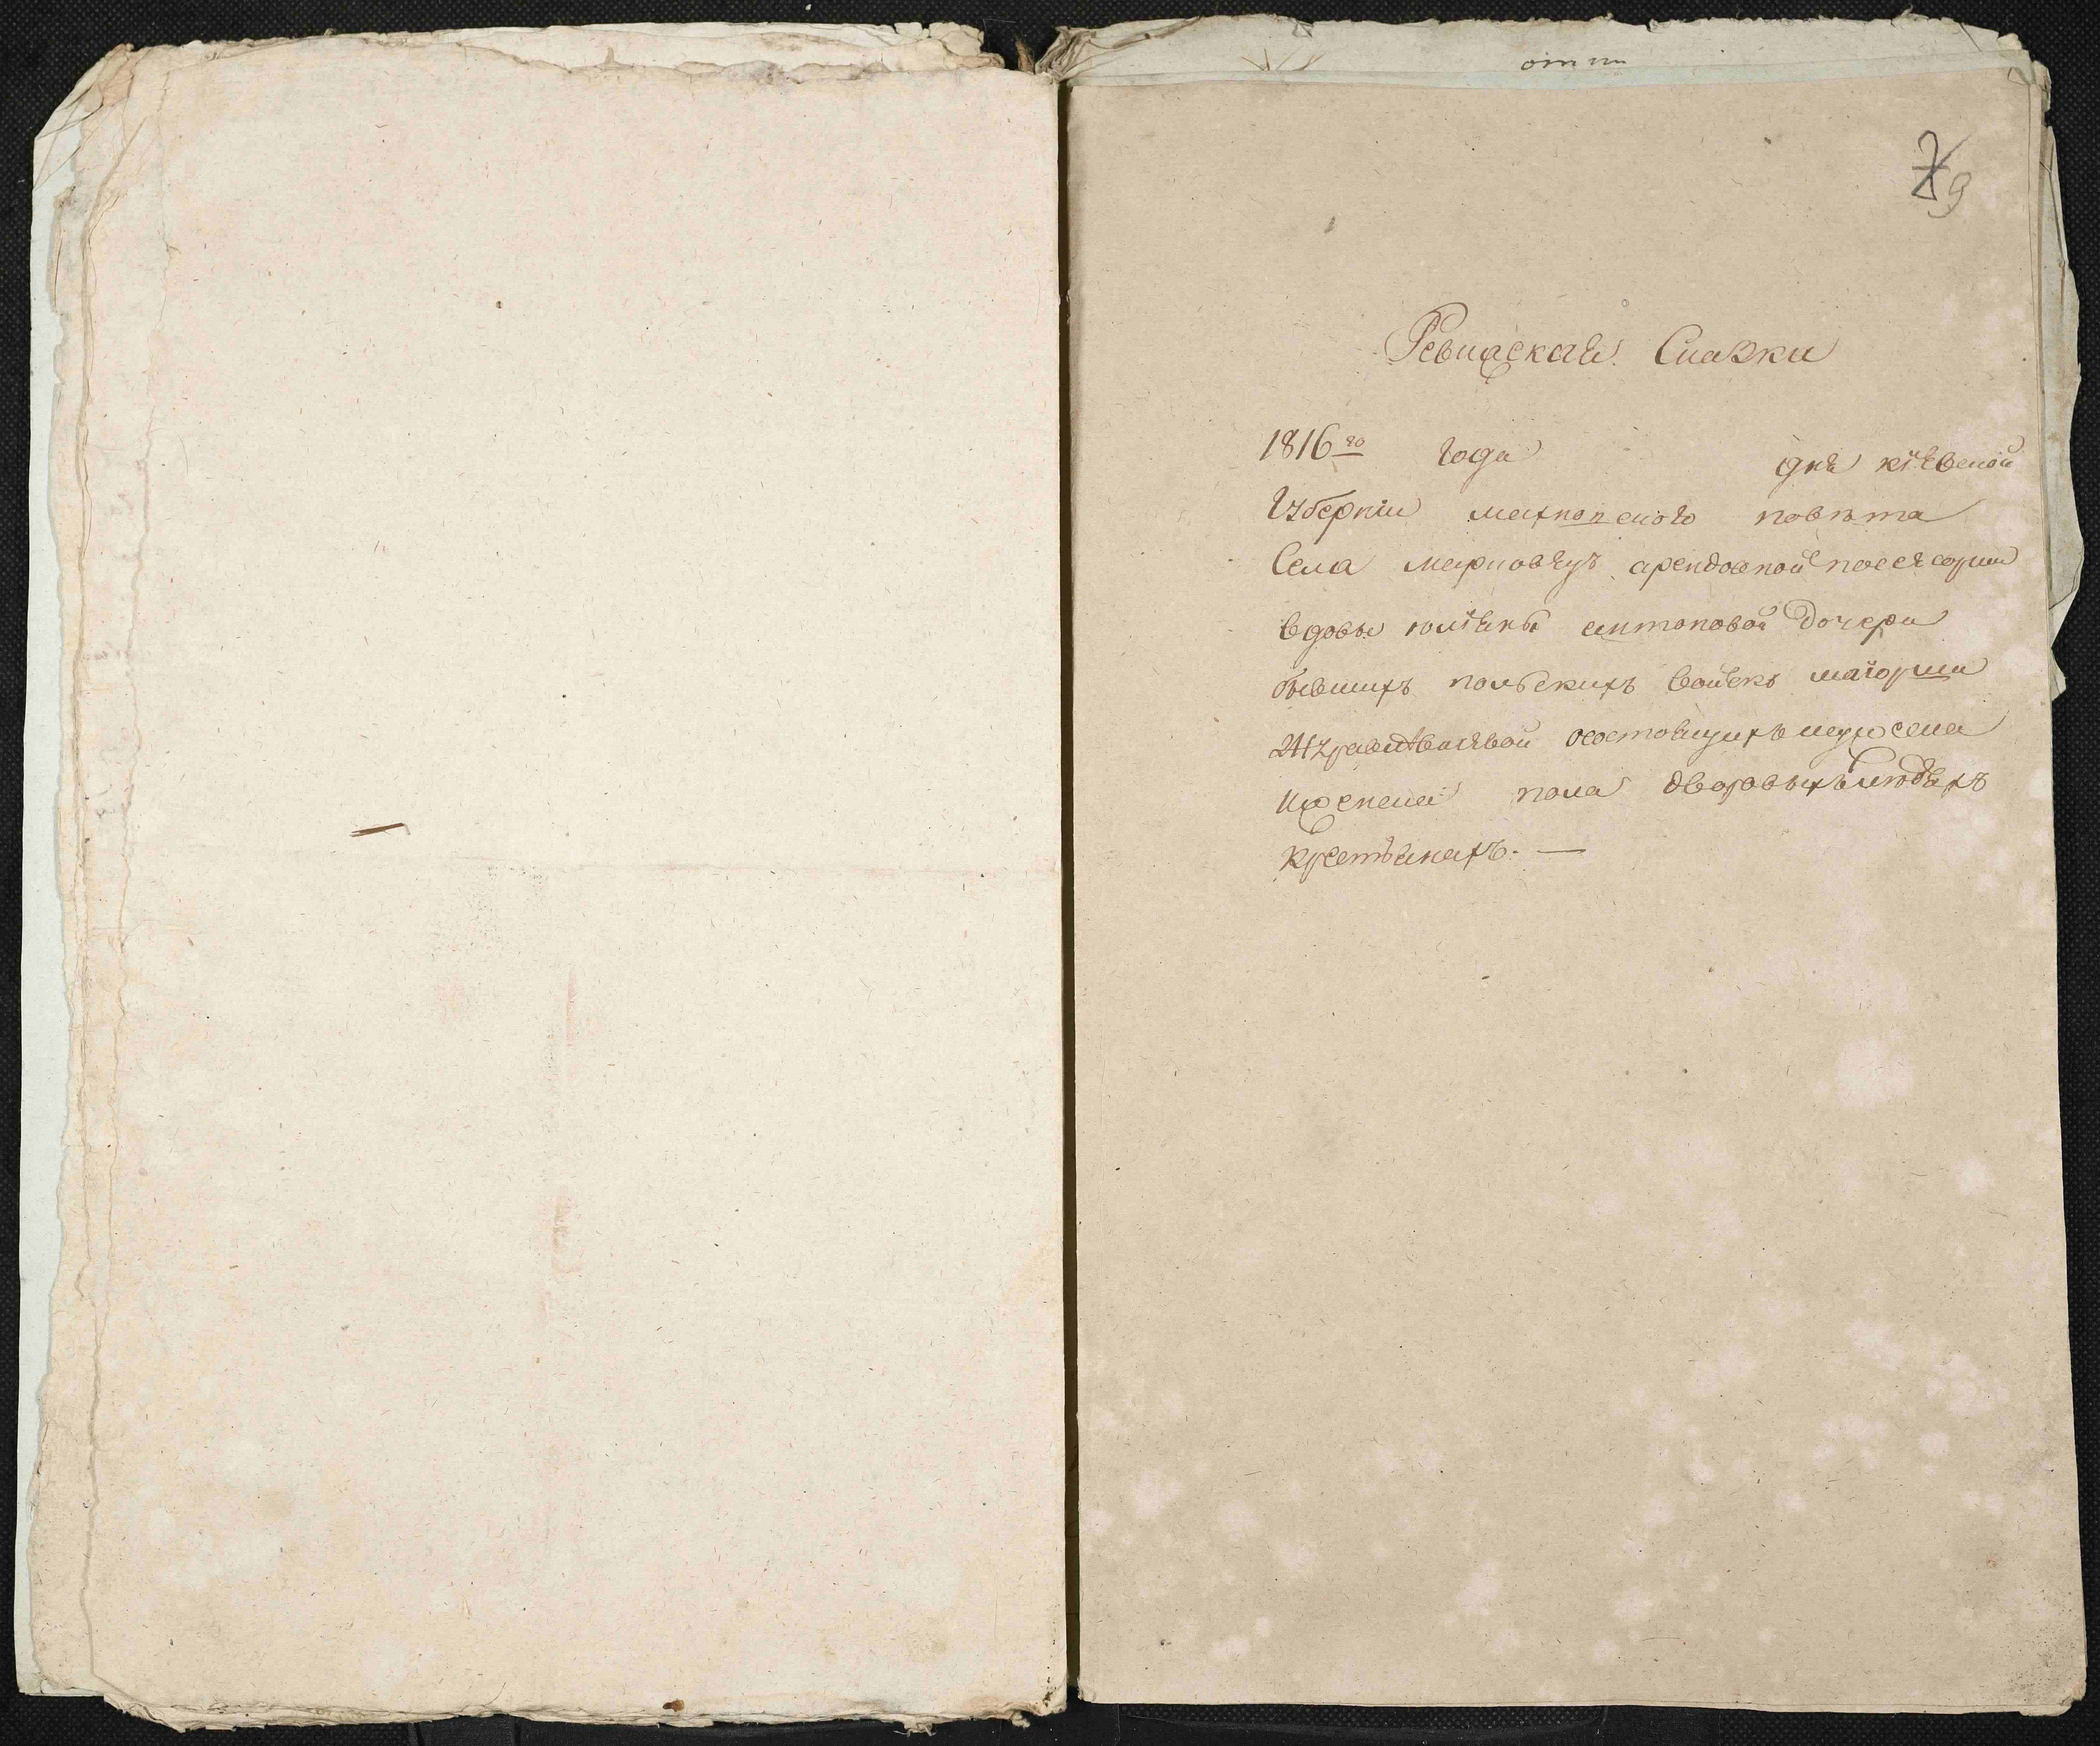 от
7 9
Ревиская Сказки
1816го года дня кіевской
Губерніи махновского повѣта
Села Марковец арендовной посесории
вдовы юліяны антоновой дочери
бывшихъ польскихъ войскъ маіорши
осостоящихъ мужеска
иженска пола дворовыхъ людяхъ
крестьянахъ. —